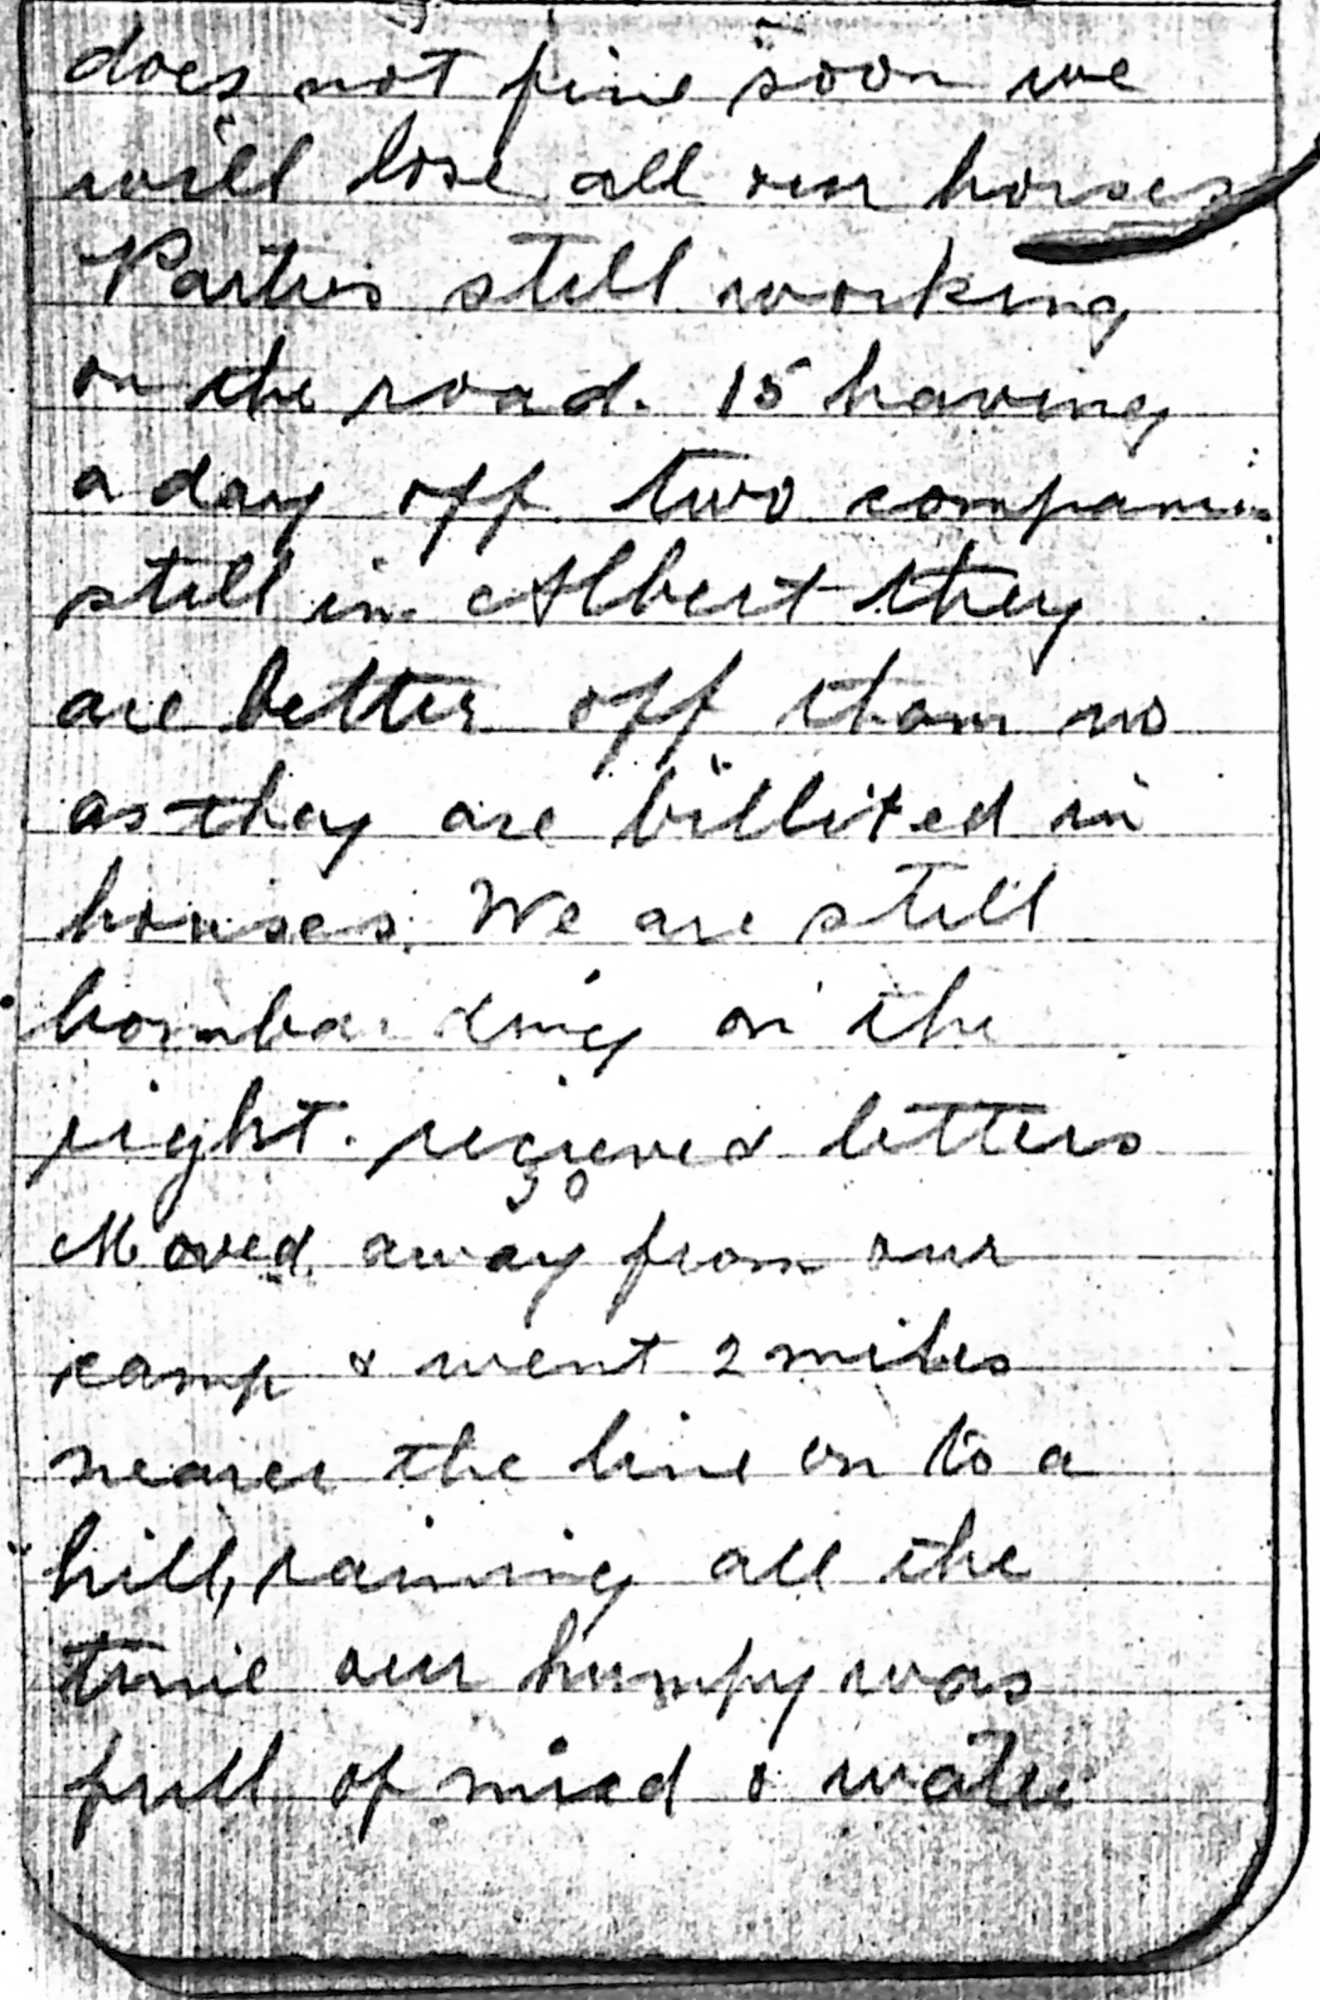 does not fine soon we
will lose all our horses
Parties still working
on the road. 15 having
a day off two companies
still in Albert they
are better off than us
as they are billited in
houses. We are still
bombarding on the
right. recieved letters
30
Moved away from our
camp & went 2 miles
nearer the line on to a
hill, raining all the
time our humpy was
full of mud & water